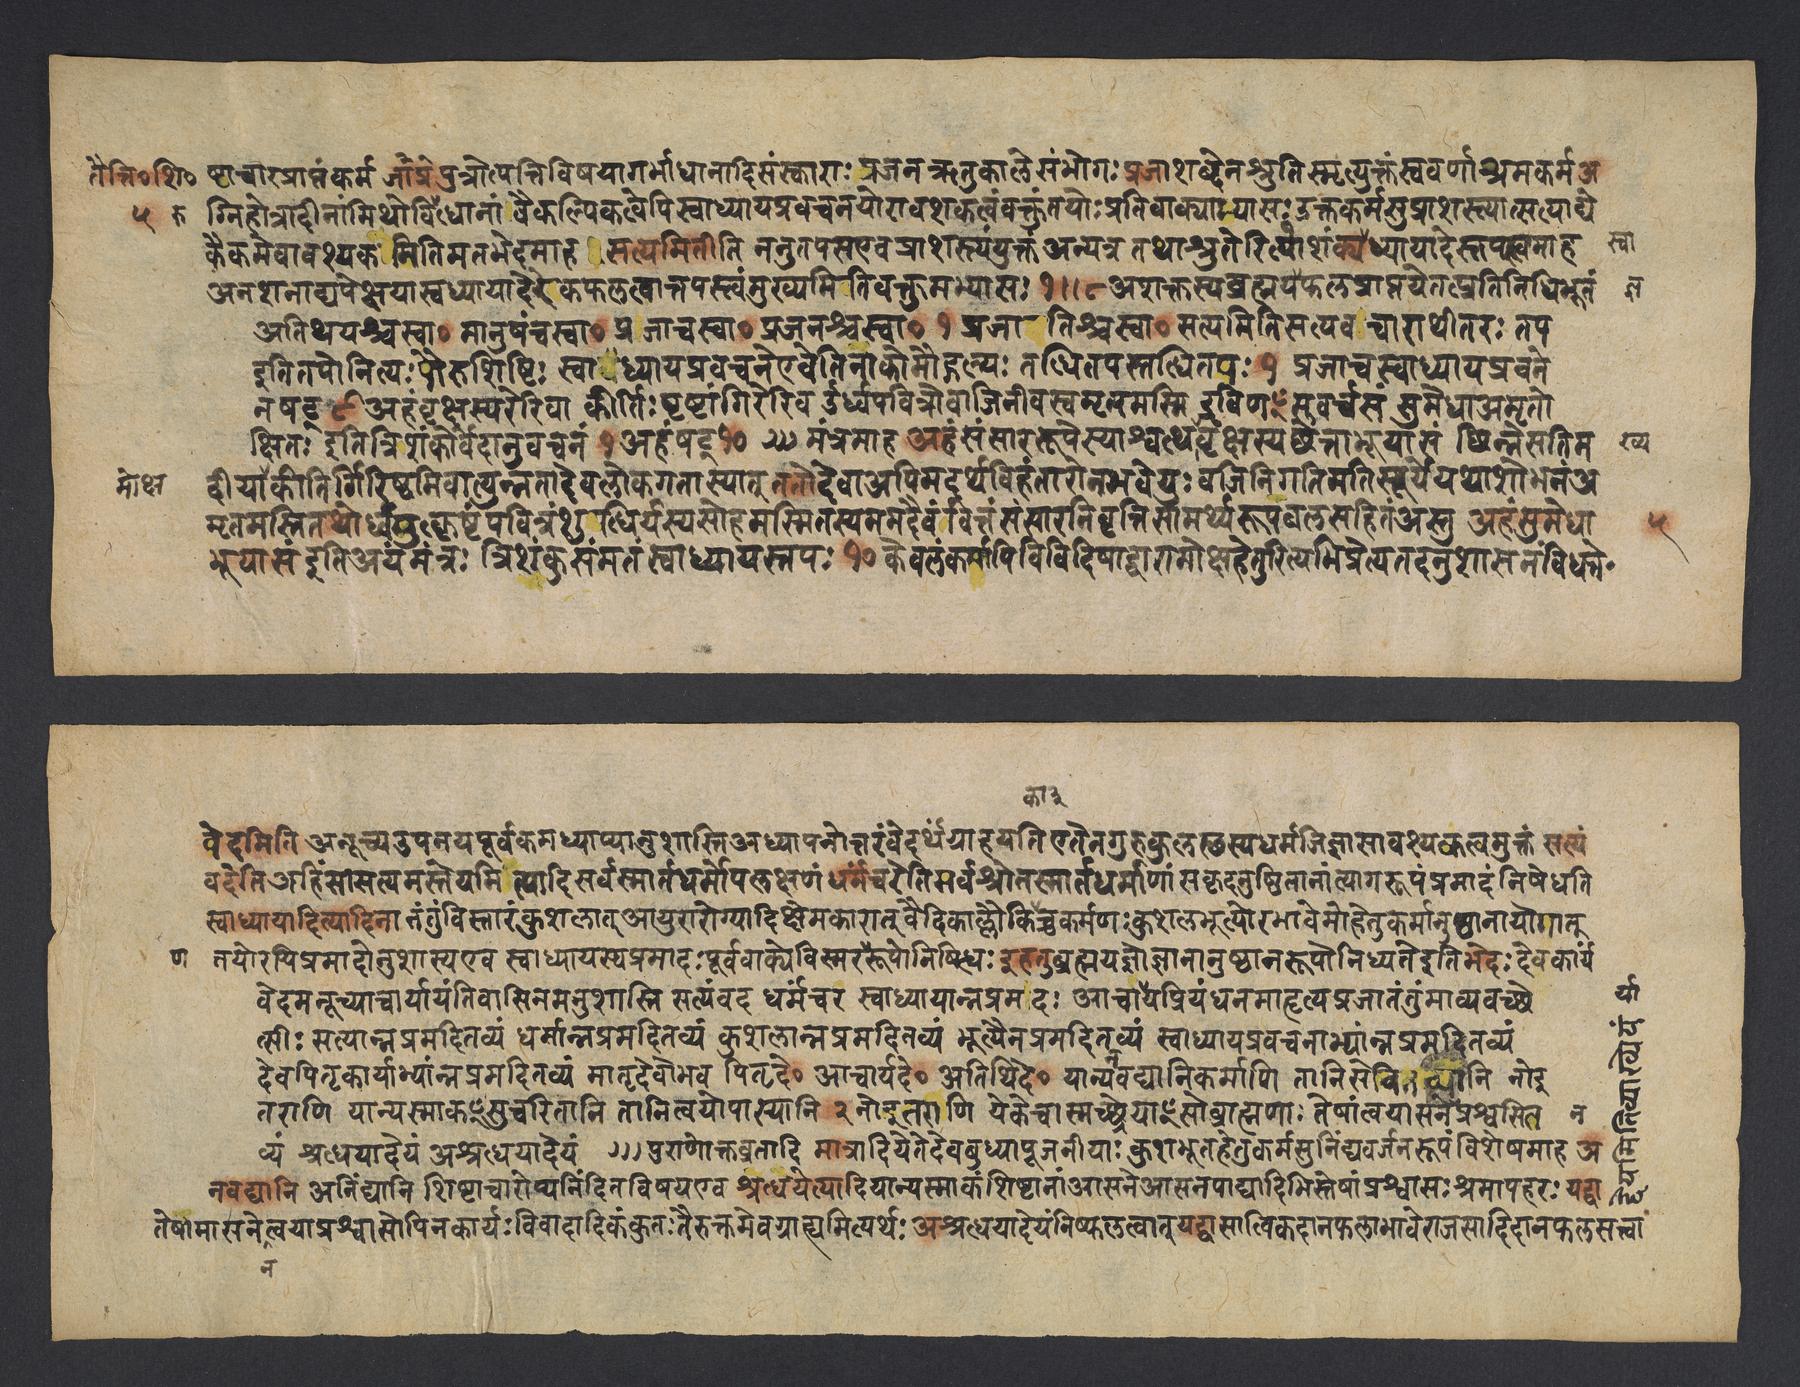 तैत्ति०शि० ष्टाचारप्राप्तंकर्म प्रजा पुत्रोत्पत्तिविषयागर्भाधानादिसंस्काराः प्रजन ऋतुकाले संभोगः प्रजाशब्देनश्रुतिस्मृत्युक्तंस्ववर्णाश्रमकर्म अ
५ ग्निहोत्रादीनांमिथोविरोधानां वैकल्पिकत्वेपिस्वाध्यायप्रवचनयोरावश्यकत्वंवक्तुंतयोः प्रतिवाक्याभ्यासः उक्तकर्मसुप्राशस्त्यात्सत्याद्ये
कैकमेवावश्यकमितिमतभेदमाह सत्यमितीति ननुतपसएवप्राशस्त्यंयुक्तं अन्यत्र तथाश्रुतेरित्याशंक्याध्यायादेस्तपस्त्वमाह स्वा
अनशनाद्यपेक्षयास्वध्यायादेरेकफलत्वात्तपस्त्वंमुख्यमितिवक्तुमभ्यासः ९ ॥ अशक्तस्यब्रह्मयज्ञफलप्राप्तयेतत्प्रतिनिधिभूतं
अतिथयश्चस्वा० मानुषंचस्वा० प्रजाचस्वा० प्रजनश्चस्वा० १ प्रजातिश्चस्वा० सत्यमितिसत्यवचाराथीतरः तप
इतितपोनित्यः पौरुशिष्टिः स्वाध्यायप्रवचनेएवेतिनाकोमौद्गल्यः तद्धितपस्तद्धितपः १ प्रजाचस्वाध्यायप्रवचने
नषट् ९ अहंवृक्षस्यरेरिवा कीर्तिः पृष्टांगिरेरिव उर्ध्वपवित्रोवाजिनीवस्वमृतमस्मि द्रविणꣳसुवर्चसं सुमेधाअमृतो
क्षितः इतित्रिशंकोर्वेदानुवचनं १ अहंषट् १० मंत्रमाह अहंसंसाररूपस्याश्वत्थवृक्षस्यछेत्ताभूयासं छिन्नेसतिम
मोक्ष दीयाकीर्तिर्गिरिपृष्टमिवात्युन्नतादेवलोकगतास्यात् ततोदेवाअपिमदर्थेविहंतारोनभवेयुः वाजिनिगतिमतिसूर्येयथाशोभनंअ
मृतमस्तितथोर्ध्वमुत्कृष्टंपवित्रंशुद्धिर्यस्यसोहमस्मितस्यममदैवंवित्तंसंसारनिवृत्तिसामर्थ्यरूपबलसहितंअस्तु अहंसुमेधा ५
भूयासं इतिअयंमंत्रः त्रिशंकुसंमतं स्वाध्यायस्तपः १० केवलंकर्मापिविविदिषाद्वारामोक्षहेतुरित्यभिप्रेत्यतदनुशासनंविधत्ते
कादु
वेदमिति अनूच्यउपनयपूर्वकमध्याप्यानुशास्तिअध्यापनोत्तरंवेदर्थंग्राहयति एतेनगुरुकुलस्थस्यधर्मजिज्ञासावश्यकत्वमुक्तं सत्यं
वदेति अहिंसासत्यमस्तेयमित्यादि सर्वस्मार्तधर्मोपलक्षणं धर्मंचरेतिसर्वश्रौतस्मार्तधर्माणां सकृदनुष्ठितानांत्यागरूपंप्रमादंनिषेधति
स्वाध्यायादित्यादिना तंतुंविस्तारंकुशलात् आयुरारोग्यादिक्षेमकारात् वैदिकाल्लौकिकाच्चकर्मणः कुशलभूत्योरभावेमोहेतुकर्मानुष्ठानायोगात्
ण तयोरपिप्रमादोनुशास्यएव स्वाध्यायस्यप्रमादः पूर्ववाक्येविस्मररूपोनिषिद्धः इहतुब्रह्मयज्ञोज्ञानानुष्ठानरूपोनिध्यतेइतिभेदः देवकार्यं
वेदमनूच्याचार्यायंतेवासिनमनुशास्ति सत्यंवद धर्मंचर स्वाध्यायान्नप्रमदः आचार्यप्रियंधनमाहृत्यप्रजातंतुंमाव्यवच्छे
त्सीः सत्यान्नप्रमदितव्यं धर्मान्नप्रमदितव्यं कुशलान्नप्रमदितव्यं भूत्यैनप्रमदितव्यं स्वाध्यायप्रवचनाभ्यांन्नप्रमदितव्यं
देवपितृकार्याभ्यांन्नप्रमदितव्यं मातृदेवोभव पितृदे० आचार्यदे० अतिथिदे० यान्यनवद्यानिकर्माणि तानिसेवितव्यानि नोइ
तराणि यान्यस्माकꣳसुचरितानि तानित्वयोपास्यानि २ नोइतराणि येकेचास्मच्छ्रेयाꣳसोब्राह्मणाः तेषांत्वयासनेनप्रश्वसित
व्यं श्रद्धेयादेयं अश्रद्धेयादेयं पुराणोक्तव्रतादि मात्रादियेतेदेवबुध्यापूजनीयाः कुशभूतहेतुकर्मसुनिंद्यवर्जनरूपंविशेषमाह अ
नवद्यानि अनिंद्यानि शिष्टाचारोप्यनिंदितविषयएव श्रद्धेयेत्यादियान्यस्माकंशिष्टानांआसनेआसनपाद्यादिभिस्तेषांप्रश्वासः श्रमापहरः यद्वा
तेषामासनेत्वयाप्रश्वासोपिनकार्यः विवादादिकंकुतः तैरुक्तमेवग्राह्यमित्यर्थः अश्रद्धेयादेयंनिष्फलत्वात् यद्वासात्विकदानफलाभावेराजसादिदानफलसत्त्वा
न